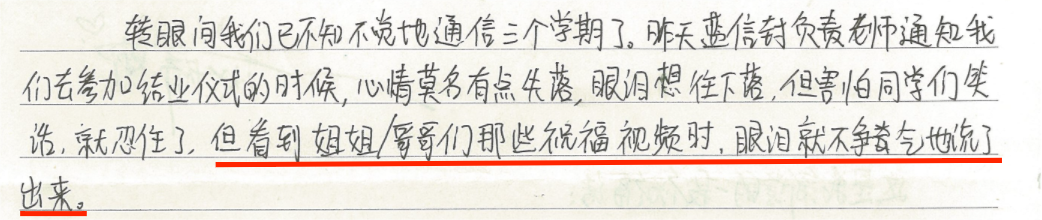 转眼间我们已不知不觉地通信三个学期了。昨天蓝信封负责老师通知我
们去参加结业仪式的时候，心情莫名有点失落，眼泪想往下落，但害怕同学们笑
话，就忍住了，但看到姐姐/哥哥们那些祝福视频时，眼泪就不争气地流了
出来。